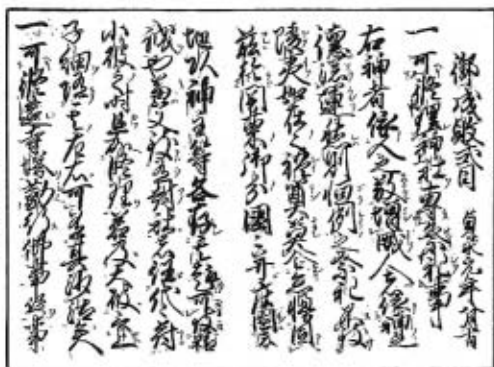 御成敗式目 貞永元年八月日
一 可修理神社専祭祀事
右神者依人之敬増威人者依神之
徳添運然則恒例之祭礼不致
陵夷如在之礼奠莫令怠慢因
茲於関東御分國々并庄園者
地頭神主等各存其趣可致精
誠也兼又至有封社者任代々符
小破之時且加修理若及大破言上
子細随其左右可有其沙汰矣
一 可修造寺塔勤行佛事等事